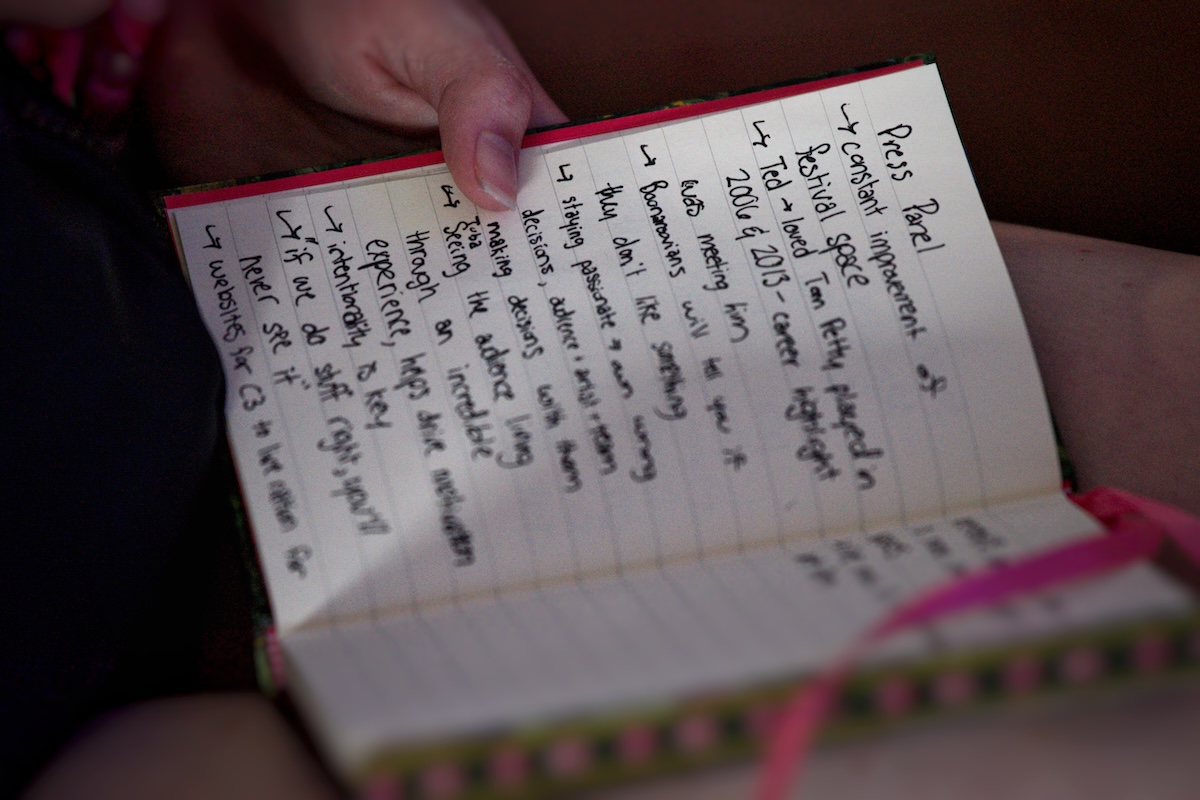 Press Panel
↳ constant improvement of
festival space
↳ Ted → loved Tom Petty played in
2006 & 2013 - career highlight
was meeting him
↳ Boonarovians will tell you if
they don't like something
↳ staying passionate → own wrong
decisions, audience + artist + team
making decisions with them
↳ Tuba Seeing the audience living
through an incredible
experience, helps drive motivation
↳ intentionality is key
↳ "if we do stuff right, you'll
never see it"
↳ websites for C3 to live nation for